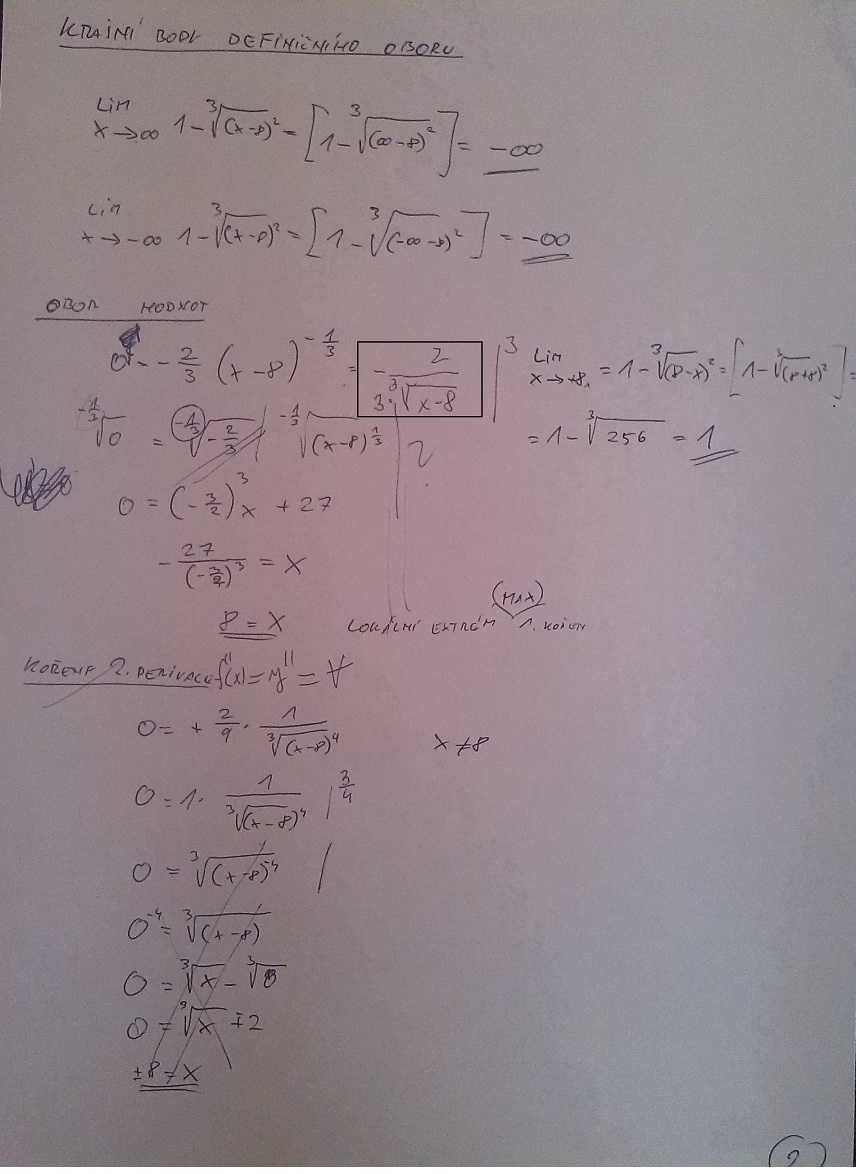 KRAJNÍ BODY DEFINIČNÍHO OBORU
lim x→∞ 1-∛(x-8)² = [1-∛(∞-8)²] = -∞
lim x→-∞ 1-∛(x-8)² = [1-∛(-∞-8)²] = -∞
OBOR HODNOT
- 2/3 (x-8)^(-1/3) = - 2/(3·∛(x-8)) |³
lim x→+8 = 1-∛(8-x)² = [1-∛(8+8)²] =
= 1-∛256 = 1
0 = (-3/2)³x + 27
- 27/(-3/2)³ = x
8 = x
LOKÁLNÍ EXTRÉM (MAX) 1. KOŘEN
KOŘENY 2. DERIVACE f''(x) = y'' = ∀
0 = + 2/9 · 1/∛(x-8)⁴
x ≠ 8
0 = 1 · 1/∛(x-8)⁴ | 3/4
0 = ∛(x-8)⁻⁴ |
0⁻⁴ = ∛(x-8)
0 = ∛x - ∛8
0 = ∛x ∓ 2
±8 = x
2